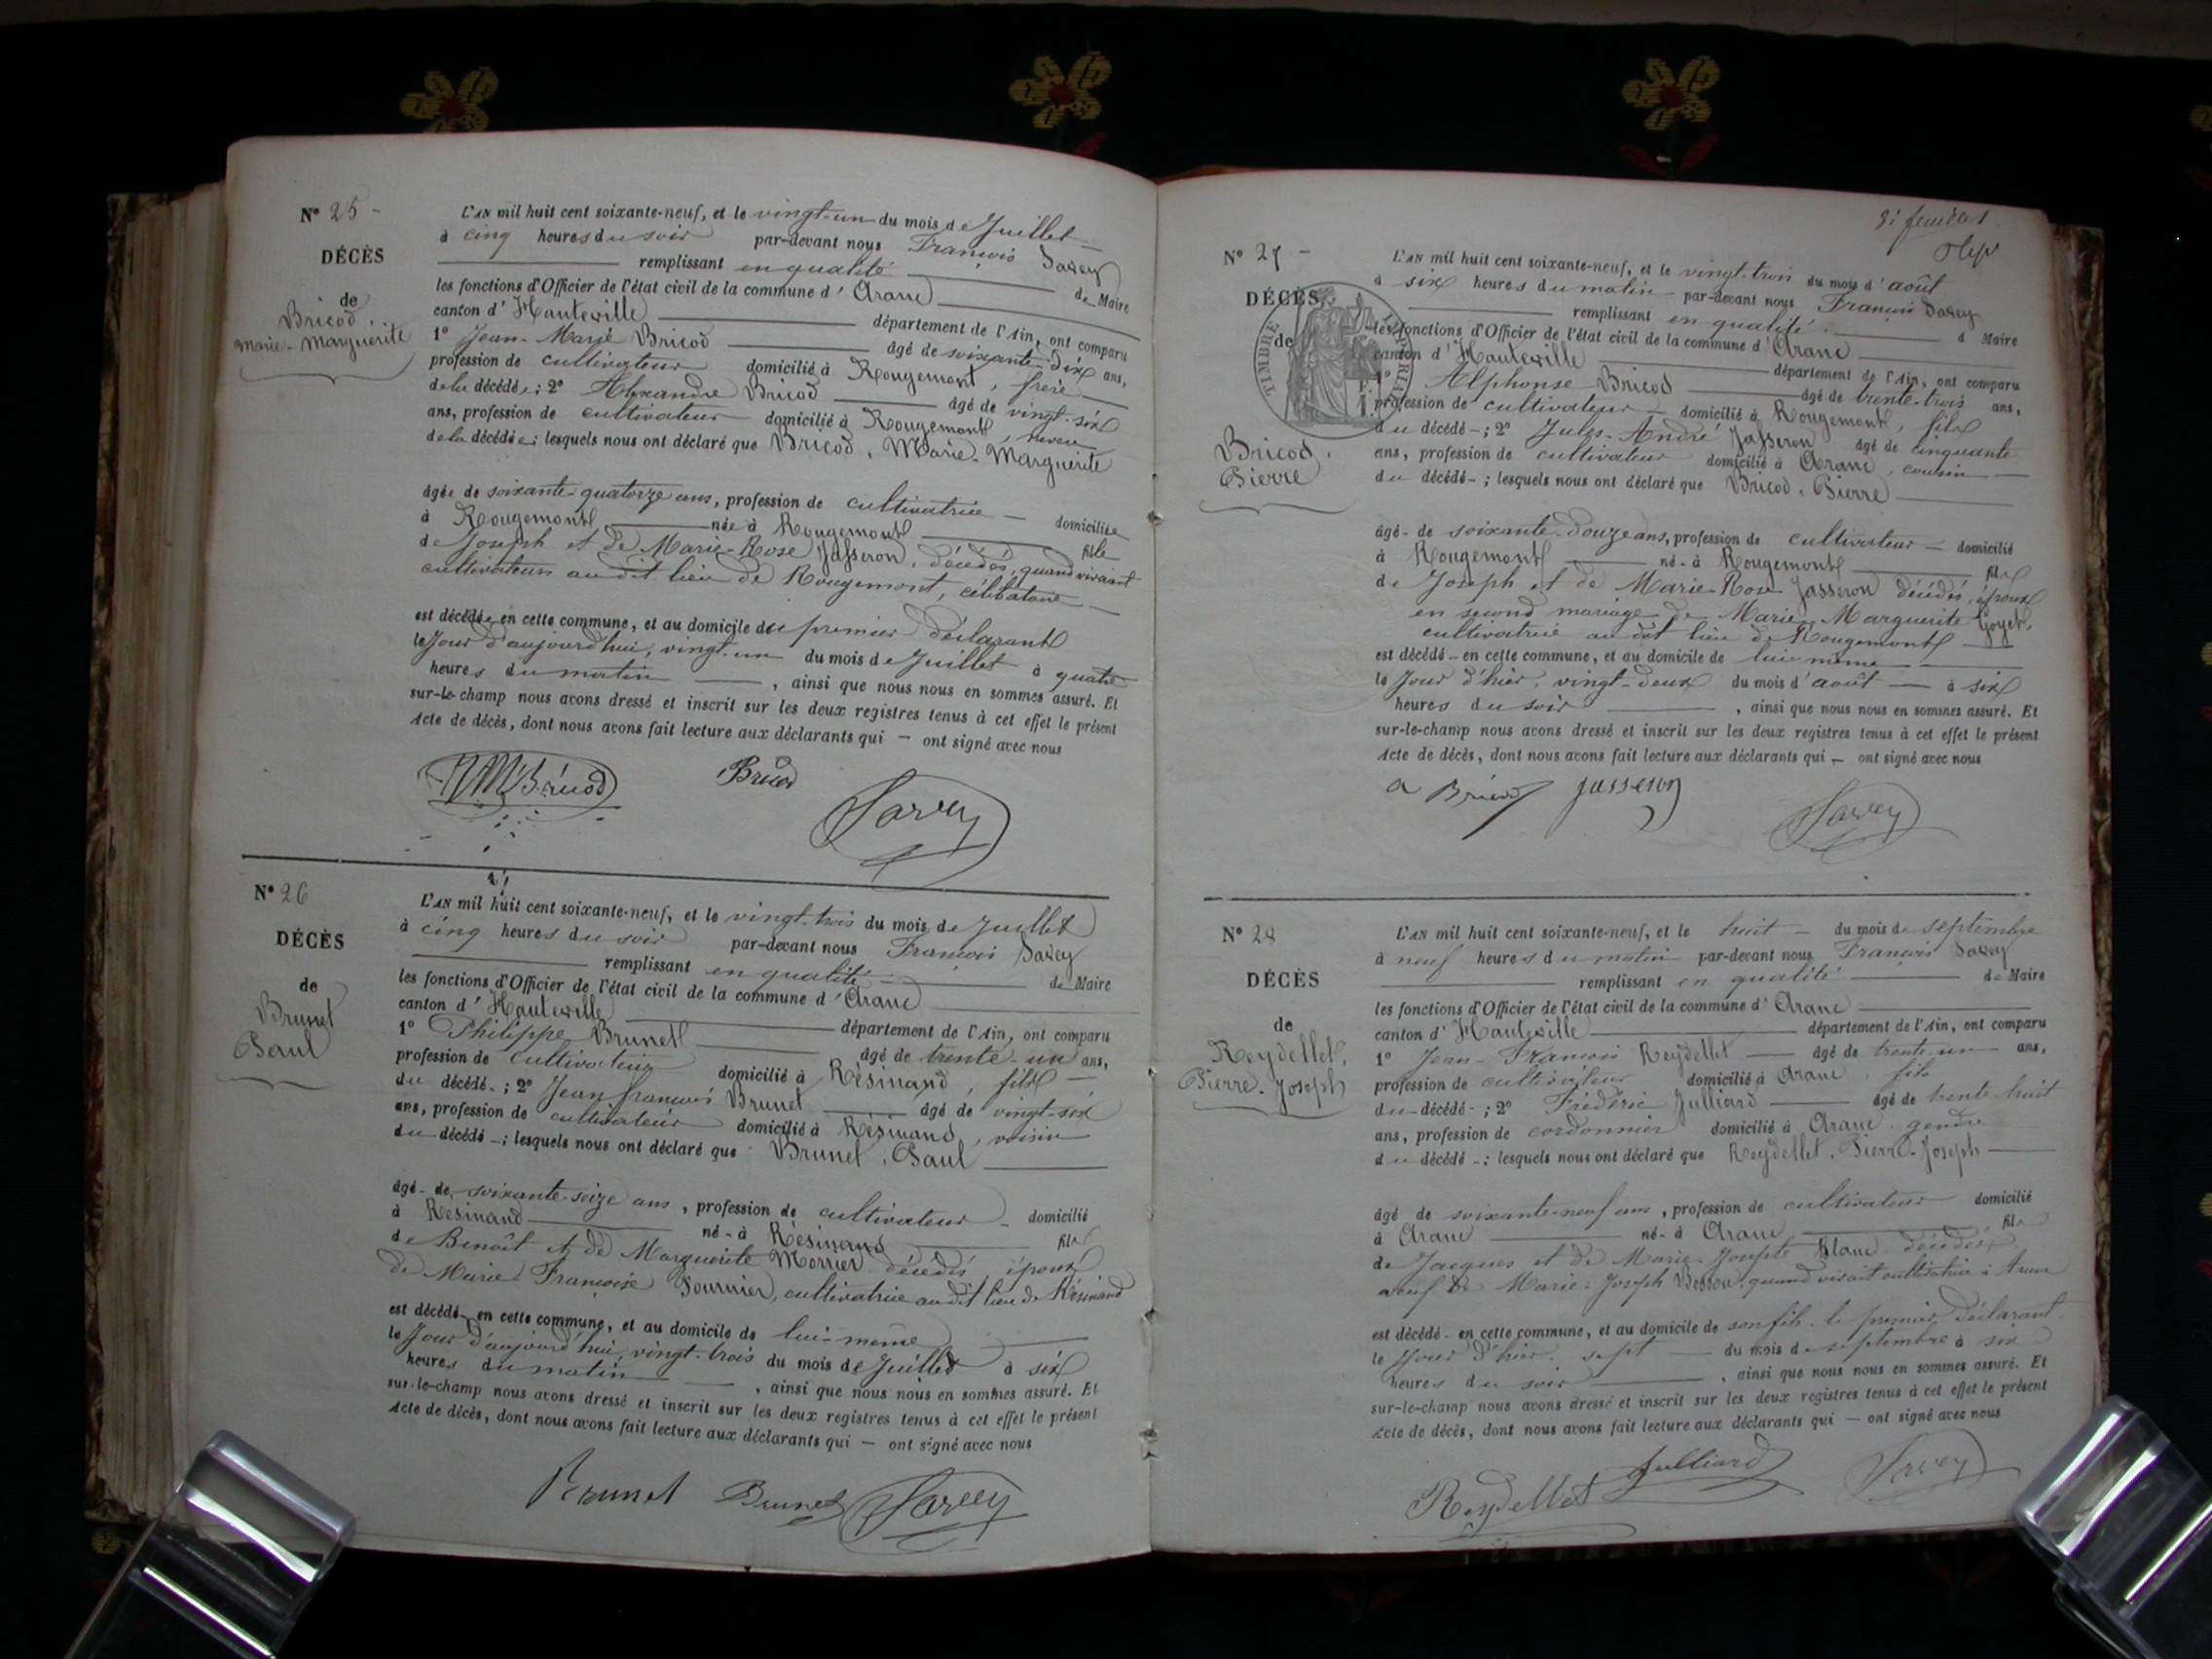 N° 25 -
DÉCÈS
de
Bricod,
Marie-Marguerite
L'AN mil huit cent soixante-neuf, et le vingt-un du mois de Juillet
à cinq heures du soir par-devant nous François Savey
remplissant en qualité de Maire
les fonctions d'Officier de l'état civil de la commune d' Aranc
canton d' Hauteville département de l'Ain, ont comparu
1° Jean-Marie Bricod âgé de soixante-dix ans,
profession de cultivateur domicilié à Rougemont, frère
de la décédée; 2° Alexandre Bricod âgé de vingt-six
ans, profession de cultivateur domicilié à Rougemont, neveu
de la décédée; lesquels nous ont déclaré que Bricod, Marie-Marguerite
âgée de soixante-quatorze ans, profession de cultivatrice domiciliée
à Rougemont née à Rougemont fille
de Joseph et de Marie-Rose Jasseron, décédés, quand vivaient
cultivateurs au dit lieu de Rougemont, célibataire
est décédée en cette commune, et au domicile du premier déclarant
le Jour d'aujourd'hui, vingt-un du mois de Juillet à quatre
heures du matin, ainsi que nous nous en sommes assuré. Et
sur-le-champ nous avons dressé et inscrit sur les deux registres tenus à cet effet le présent
Acte de décès, dont nous avons fait lecture aux déclarants qui — ont signé avec nous
JM Bricod Bricod Savey
N° 26
DÉCÈS
de
Brunet
Paul
L'AN mil huit cent soixante-neuf, et le vingt-trois du mois de Juillet
à cinq heures du soir par-devant nous François Savey
remplissant en qualité de Maire
les fonctions d'Officier de l'état civil de la commune d' Aranc
canton d' Hauteville département de l'Ain, ont comparu
1° Philippe Brunet âgé de trente-un ans,
profession de cultivateur domicilié à Résinand, fils
du décédé -; 2° Jean françois Brunet âgé de vingt-six
ans, profession de cultivateur domicilié à Résinand, voisin
du décédé -; lesquels nous ont déclaré que Brunet, Paul
âgé - de soixante-seize ans, profession de cultivateur domicilié
à Résinand né - à Résinand fils
de Benoît et de Marguerite Morrier décédés époux
de Marie-Françoise Fournier, cultivatrice au dit lieu de Résinand
est décédé en cette commune, et au domicile de lui-même
le Jour d'aujourd'hui, vingt-trois du mois de Juillet à six
heures du matin, ainsi que nous nous en sommes assuré. Et
sur-le-champ nous avons dressé et inscrit sur les deux registres tenus à cet effet le présent
Acte de décès, dont nous avons fait lecture aux déclarants qui — ont signé avec nous
Brunet Brunet Savey
N° 27 -
DÉCÈS
de
TIMBRE IMPERIAL
Bricod,
Pierre
L'AN mil huit cent soixante-neuf, et le vingt-trois du mois d'août
à six heures du matin par-devant nous François Savey
remplissant en qualité d Maire
les fonctions d'Officier de l'état civil de la commune d' Aranc
canton d' Hauteville département de l'Ain, ont comparu
1° Alphonse Bricod âgé de trente-trois ans,
profession de cultivateur domicilié à Rougemont, fils
du décédé -; 2° Jules-André Jasseron âgé de cinquante
ans, profession de cultivateur domicilié à Aranc, cousin
du décédé -; lesquels nous ont déclaré que Bricod, Pierre
âgé - de soixante-douze ans, profession de cultivateur domicilié
à Rougemont né - à Rougemont fils
de Joseph et de Marie-Rose Jasseron décédés, époux
en second mariage de Marie-Marguerite Goyet,
cultivatrice au dit lieu de Rougemont
est décédé - en cette commune, et au domicile de lui même
le Jour d'hier, vingt-deux du mois d'août à six
heures du soir, ainsi que nous nous en sommes assuré. Et
sur-le-champ nous avons dressé et inscrit sur les deux registres tenus à cet effet le présent
Acte de décès, dont nous avons fait lecture aux déclarants qui — ont signé avec nous
a Bricod Jasseron Savey
N° 28
DÉCÈS
de
Reydellet,
Pierre-Joseph
L'AN mil huit cent soixante-neuf, et le huit du mois de septembre
à neuf heures du matin par-devant nous François Savey
remplissant en qualité de Maire
les fonctions d'Officier de l'état civil de la commune d' Aranc
canton d' Hauteville département de l'Ain, ont comparu
1° Jean-François Reydellet âgé de trente-un ans,
profession de cultivateur domicilié à Aranc, fils
du décédé -; 2° Frédéric Julliard âgé de trente-huit
ans, profession de cordonnier domicilié à Aranc, gendre
du décédé -; lesquels nous ont déclaré que Reydellet, Pierre-Joseph
âgé de soixante-neuf ans, profession de cultivateur domicilié
à Aranc né - à Aranc fils
de Jacques et de Marie-Josephte Blanc décédés
veuf de Marie-Joseph Besson, quand vivait cultivatrice à Aranc
est décédé - en cette commune, et au domicile de son fils le premier déclarant
le Jour d'hier, sept du mois de septembre à six
heures du soir, ainsi que nous nous en sommes assuré. Et
sur-le-champ nous avons dressé et inscrit sur les deux registres tenus à cet effet le présent
Acte de décès, dont nous avons fait lecture aux déclarants qui — ont signé avec nous
Reydellet Julliard Savey